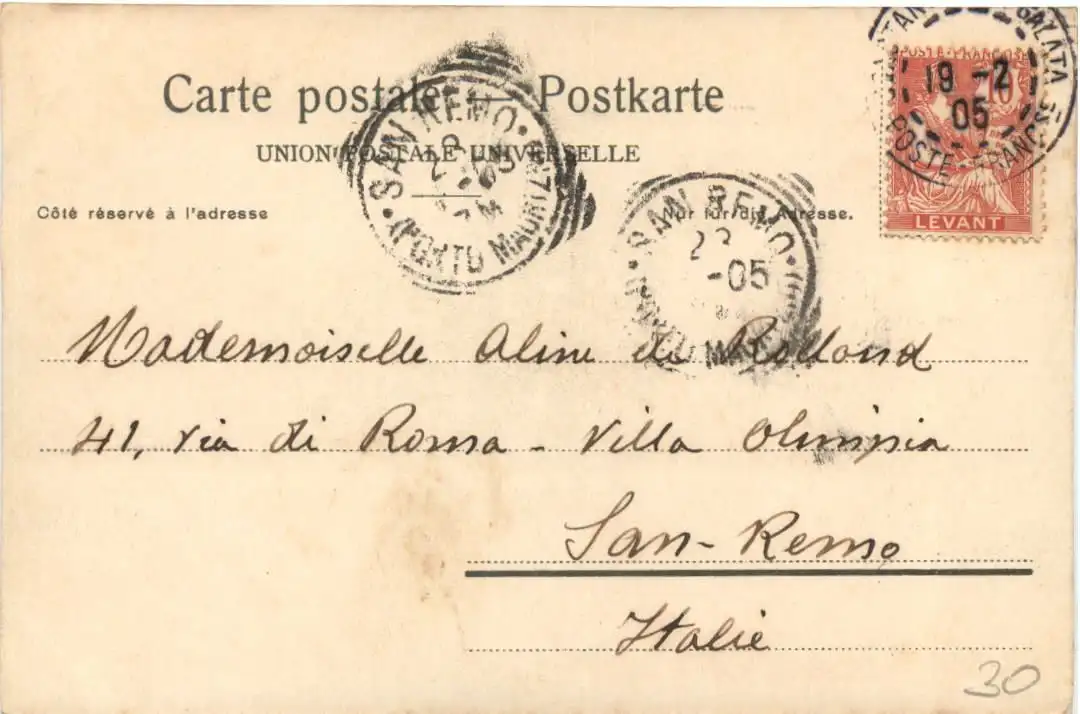 Carte postale — Postkarte
UNION POSTALE UNIVERSELLE
Côté réservé à l'adresse
Nur für die Adresse.
POSTE FRANÇAISE
10
LEVANT
GALATA
POSTE FRANCSE
19 -2
05
SAN REMO
(PORTO MAURIZIO)
SAN REMO
23
-05
Mademoiselle Aline de Rolland
41, via di Roma - Villa Olimpia
San-Remo
Italie
30